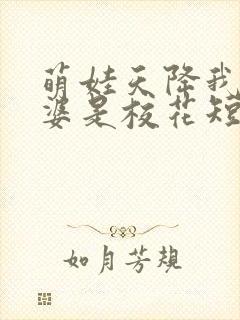 萌娃天降我
婆是校花短
如月芳规